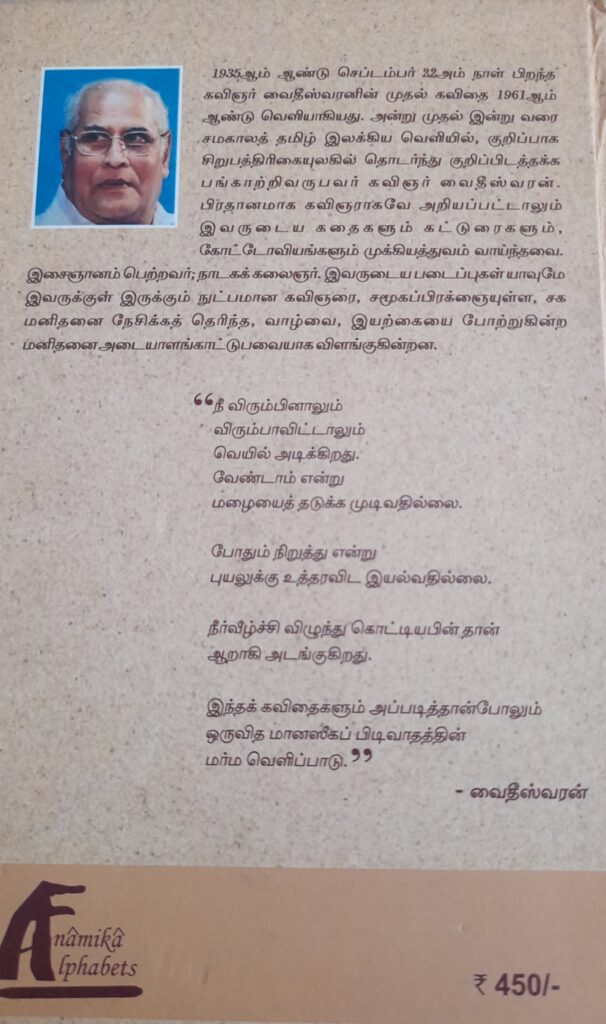 1935ஆம் ஆண்டு செப்டம்பர் 22ஆம் நாள் பிறந்த
கவிஞர் வைதீஸ்வரனின் முதல் கவிதை 1961ஆம்
ஆண்டு வெளியாகியது. அன்று முதல் இன்று வரை
சமகாலத் தமிழ் இலக்கிய வெளியில், குறிப்பாக
சிறுபத்திரிகையுலகில் தொடர்ந்து குறிப்பிடத்தக்க
பங்காற்றிவருபவர் கவிஞர் வைதீஸ்வரன்.
பிரதானமாக கவிஞராகவே அறியப்பட்டாலும்
இவருடைய கதைகளும் கட்டுரைகளும்,
கோட்டோவியங்களும் முக்கியத்துவம் வாய்ந்தவை.
இசைஞானம் பெற்றவர்; நாடகக் கலைஞர். இவருடைய படைப்புகள் யாவுமே
இவருக்குள் இருக்கும் நுட்பமான கவிஞரை, சமூகப்பிரக்ஞையுள்ள, சக
மனிதனை நேசிக்கத் தெரிந்த, வாழ்வை, இயற்கையை போற்றுகின்ற
மனிதனை அடையாளங்காட்டுபவையாக விளங்குகின்றன.
“நீ விரும்பினாலும்
விரும்பாவிட்டாலும்
வெயில் அடிக்கிறது.
வேண்டாம் என்று
மழையைத் தடுக்க முடிவதில்லை.
போதும் நிறுத்து என்று
புயலுக்கு உத்தரவிட இயல்வதில்லை.
நீர்வீழ்ச்சி விழுந்து கொட்டியபின் தான்
ஆறாகி அடங்குகிறது.
இந்தக் கவிதைகளும் அப்படித்தான்போலும்
ஒருவித மானஸீகப் பிடிவாதத்தின்
மர்ம வெளிப்பாடு.”
- வைதீஸ்வரன்
Anâmikâ
Alphabets
₹ 450/-